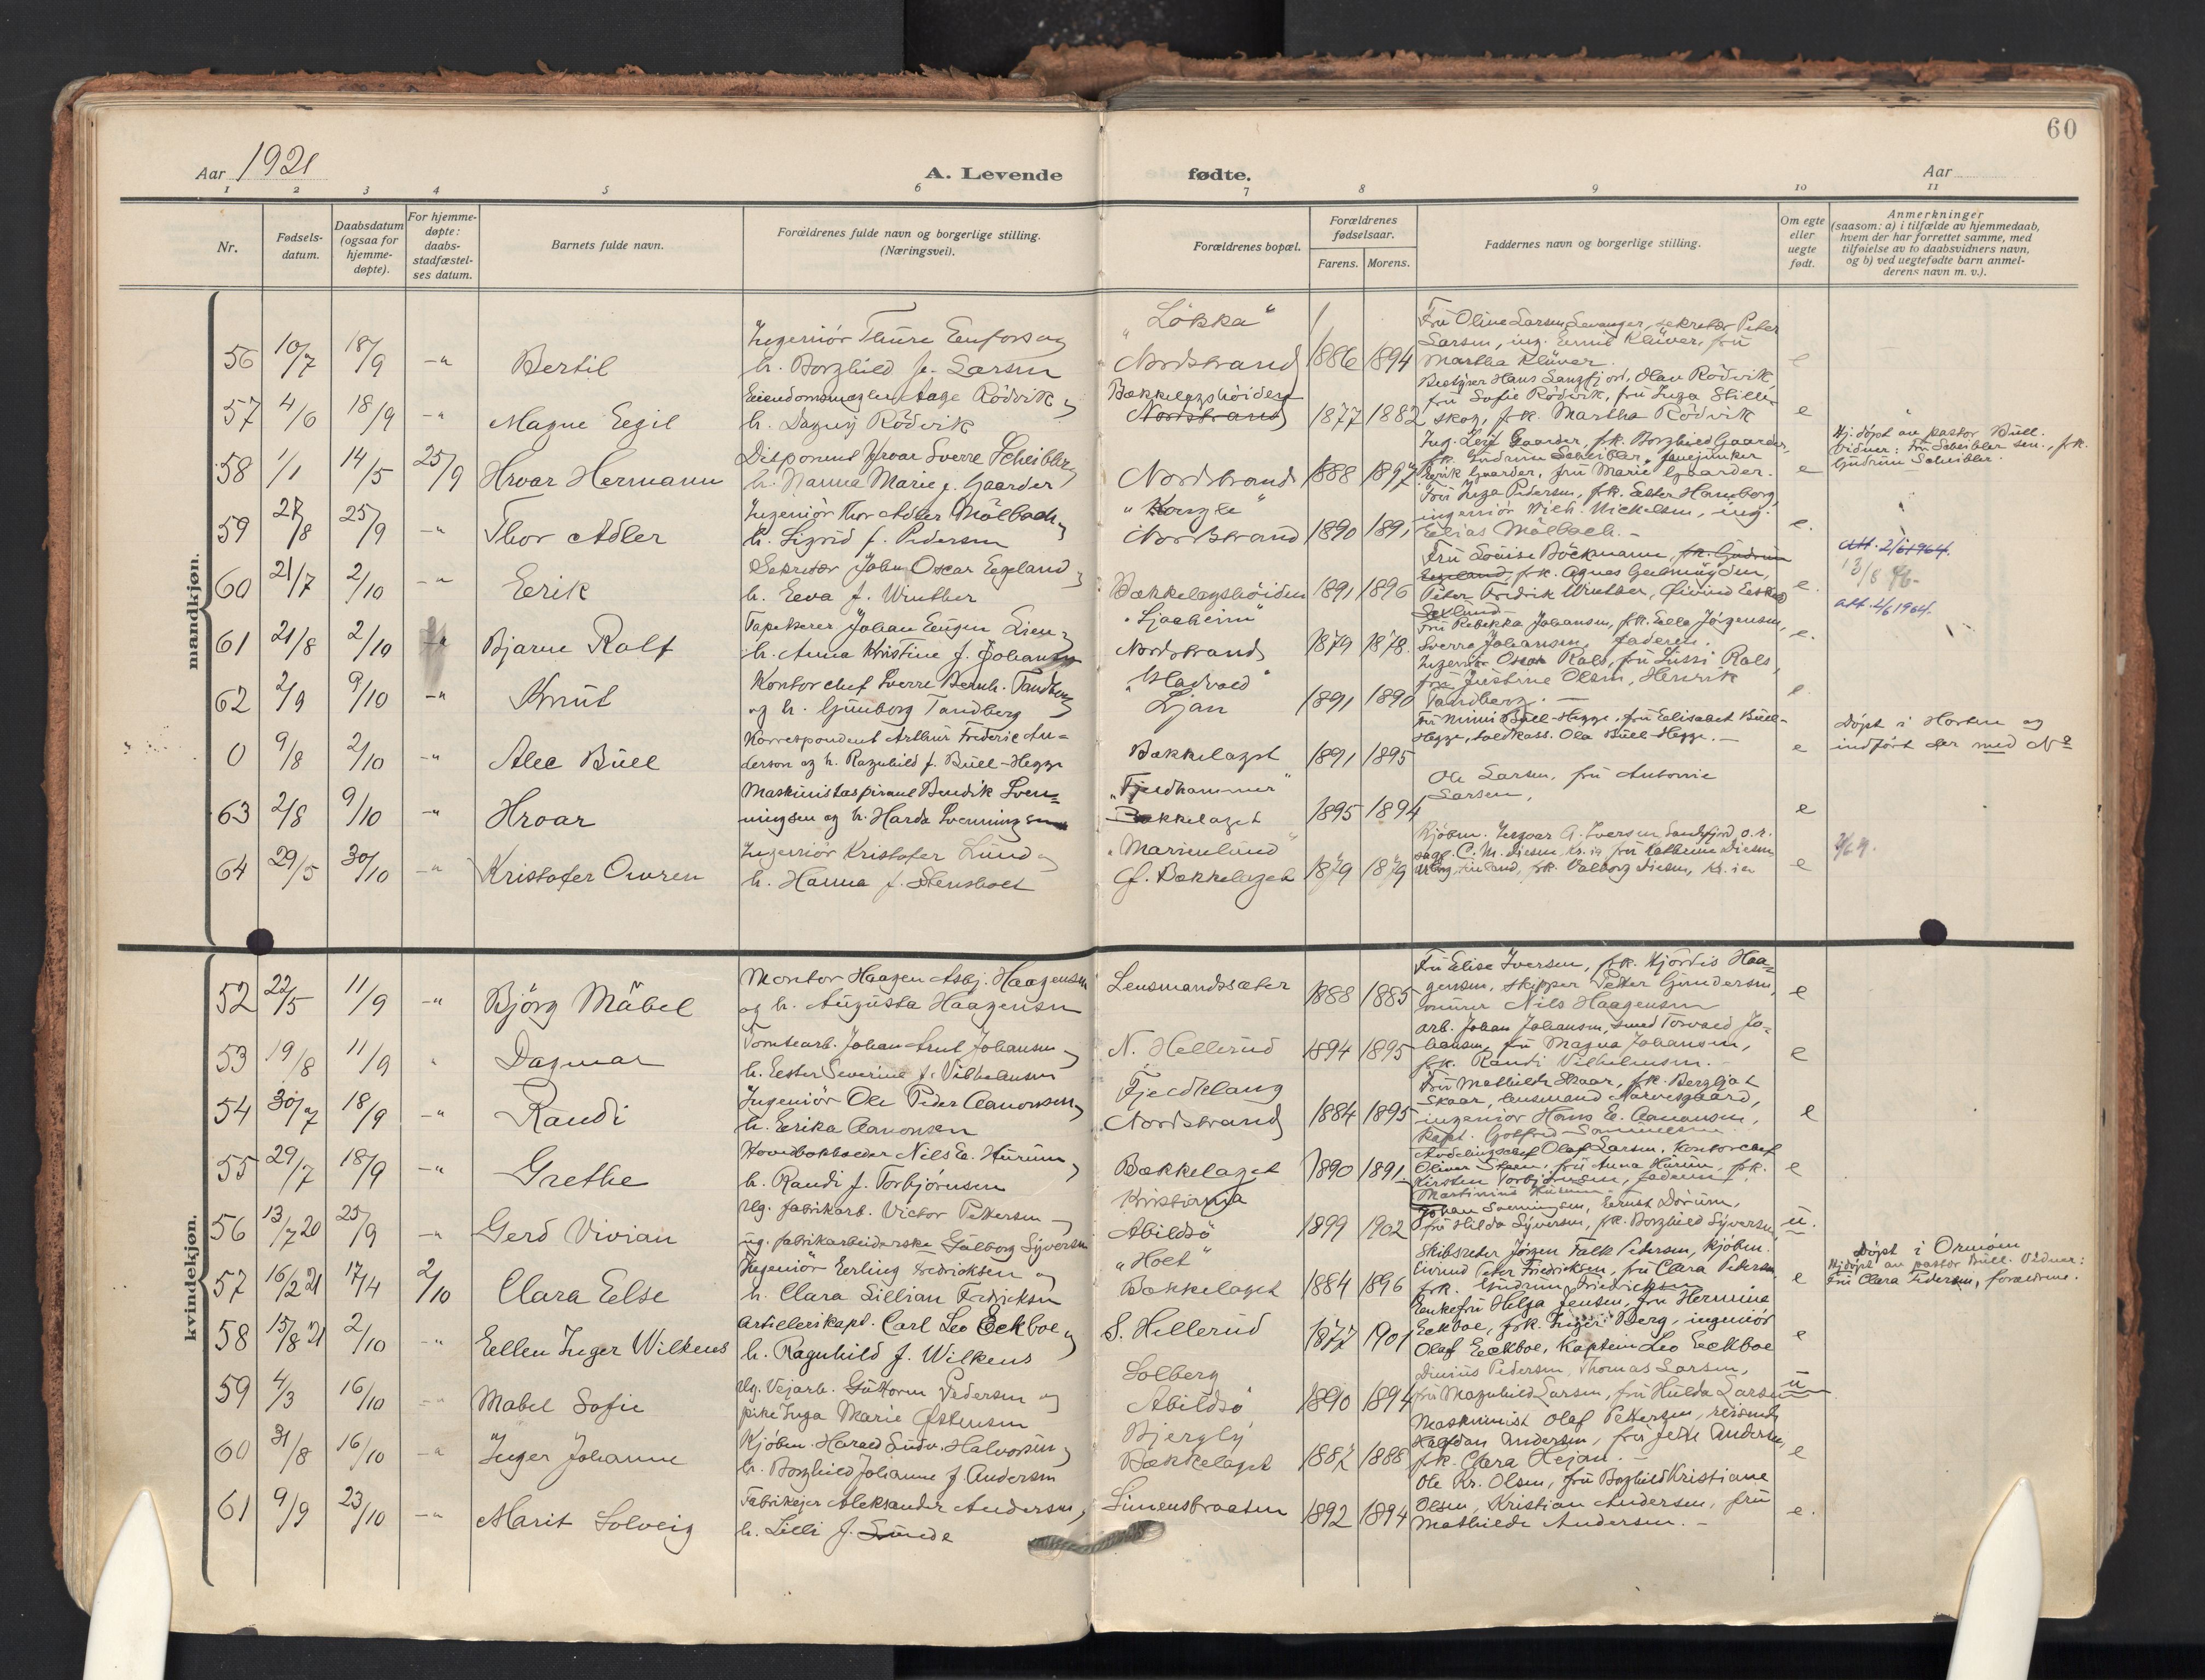 60
Aar 1921
A. Levende
fødte.
Aar
1 2 3 4 5 6 7 8 9 10 11
Nr.
Fødsels-
datum.
Daabsdatum
(ogsaa for
hjemme-
døpte).
For hjemme-
døpte:
daabs-
stadfæstel-
ses datum.
Barnets fulde navn.
Forældrenes fulde navn og borgerlige stilling.
(Næringsvei).
Forældrenes bopæl.
Forældrenes
fødselsaar.
Farens. Morens.
Faddernes navn og borgerlige stilling.
Om egte
eller
uegte
født.
Anmerkninger
(saasom: a) i tilfælde av hjemmedaab,
hvem der har forrettet samme, med
tilføielse av to daabsvidners navn,
og b) ved uegtefødte barn anmel-
derens navn m. v.).
mandkjøn.
56 10/7 18/9 -"- Bertil
Ingeniör Thure Enfors og
h. Borghild f. Larsen
"Lökka"
Nordstrand 1886 1894
Fru Oline Larsen, Levanger, sekretær Peter
Larsen, ing. Klüver, fru
Martha Klüver.
e
57 4/6 18/9 -"- Magne Egil
Eiendomsmægler Aage Rödvik og
h. Dagny Rödvik
Bækkelagshöiden
Nordstrand 1877 1882
Bestyrer Hans Langfjord, Olav Rödvik,
fru Sofie Rödvik, fru Inga Stille-
skog, frk. Martha Rödvik
e
58 1/1 14/5 25/9 Hroar Hermann
Disponent Hroar Sverre Scheibler og
h. Nanna Marie f. Gaarder
Nordstrand 1888 1897
Ing. Leif Gaarder, frk. Borghild Gaarder,
frk. Gudrun Scheibler,
Henrik Gaarder, fru Marie Gaarder.
e
Hj. döpt av pastor Bull.
Vidner: Fru Scheibler sen., frk.
Gudrun Scheibler.
59 27/8 25/9 -"- Thor Adler
Ingeniör Thor Adler Mölbach og
h. Sigrid f. Pedersen
"
Nordstrand 1890 1891
Fru Inga Pedersen, frk. Ester Hamborg,
ingeniör Mickelsen, ing.
Elias Mölbach.
e.
60 21/7 2/10 -"- Eerik
Sekretær John Oscar Egeland og
h. Eeva f. Winther
Bækkelagshöiden 1891 1896
Fru Louise Böckmann, frk. Gudrun
Egeland, frk. Agnes
Peter Fredrik Winther, Eivind
e.
att. 2/6 1964.
13/8 46-
att. 2/6 1964.
61 21/8 2/10 -"- Bjarne Ralf
Tapetserer Johan Eugen Lien og
h. Anna Kristine f. Johansen
"Ljaaheim"
Nordstrand 1879 1878.
Fru Rebekka Johansen, frk. Ella Jörgensen,
Sverre Johansen, faderen.
e.
62 2/9 9/10 -"- Knut
Kontorchef Sverre Bernh. Tandberg
og h. Gunborg Tandberg
"Hadvold"
Ljan 1891 1890
Ingeniör Oscar Rals, fru Lussi Rals,
frk. Justine Olsen, Henrik
Tandberg.
e.
0 9/8 2/10 -"- Alec Büll
Korrespondent Arthur Frederic An-
derson og h. Ragnhild f. Büll-Hegge
Bækkelaget 1891 1895
Fru Mimi Büll-Hegge, fru Elisabet Büll-
Hegge, toldkass. Ola Büll-Hegge.
e
Döpt i Horten og
indfört der med No
63 2/8 9/10 -"- Hroar
Maskinistaspirant Bendik Sven-
ningsen og h. Harda Svenningsen
"Fjeldhammer"
Bækkelaget 1895 1894
Ole Larsen, fru Antonie
Larsen,
e
64 29/5 30/10 -"- Kristofer Owren
Ingeniör Kristofer Lund og
h. Hanna f. Stensholt
"Marienlund"
Gl. Bækkelaget 1879 1879
Kjöbm. Ingvar A. Iversen, Sandefjord, o.r.
sagf. C. M. Diesen, Kr.ia fru Kathrine Diesen,
frk. Valborg Diesen, Kr.ia
e
kvindekjøn.
52 22/5 11/9 -"- Björg Mäbel
Montör Haagen Asbj. Haagensen
og h. Augusta Haagensen
Lensmandssæter 1888 1885
Fru Elise Iversen, frk. Hjördis Haa-
gensen, skipper Petter Gundersen,
murer Nils Haagensen
e
53 19/8 11/9 " Dagmar
Tomtearb. Johan Arnt Johansen og
h. Ester Severine f. Vilhelmsen
N. Hellerud 1894 1895
Arb. Johan Johansen, smed Torvald Jo-
hansen, fru Magna Johansen,
frk. Randi Vilhelmsen.
e
54 30/7 18/9 -"- Randi
Ingeniör Ole Peder Aamonsen og
h. Eerika Aamonsen
Fjeldklang
Nordstrand 1884 1895
Fru Mathilde Skaar, frk. Bergljot
Skaar, lensmand Narvesgaard,
ingeniör Hans E. Aamonsen,
Kapt. Gotfred Samuelsen
e
55 29/7 18/9 -"- Grethe
Hovedbokholder Nils E. Hurum og
h. Randi f. Torbjörnsen
Bækkelaget 1890 1891.
Avdelingschef Olaf Larsen, Kontorchef
Oliver Steen, fru Anna Hurum, frk.
Kirsten Torbjörnsen, faderen,
Martinius Hurum
e
56 13/7 20 25/9 -"- Gerd Vivian
Ug. fabrikarb. Victor Pettersen og
ug. fabrikarbeiderske Gülborg Syversen
Kristiania
Abildsö 1899 1902
Johan Svenningsen, Ernst Dörum,
fru Hilda Syversen, frk. Borghild Syversen
u.
57 16/2 21 17/4 2/10 Clara Else
Ingeniör Eerling Fredriksen og
h. Clara Lillian Fredriksen
"Holt"
Bækkelaget 1884 1896
Skibsreder Jörgen Falk Pedersen, kjöbm.
Eivind Peter Fredriksen, fru Clara Pedersen,
frk. Gudrun Friedricksen
e
Döpt i Ormöen
Hj.döpt av pastor Büll. Vidner:
Fru Clara Pedersen, forældrene.
58 15/8 21 2/10 -"- Eellen Inger Wilkens
Artillerikapt. Carl Leo Eckboe og
h. Ragnhild f. Wilkens
S. Hellerud 1877 1901
Enkefru Helga Jensen, fru Hermine
Eckboe, frk. Inger Berg, ingeniör
Olaf Eeckboe, Kaptein Leo Eeckboe
e
59 4/3 16/10 -"- Mabel Sofie
Ug. Veiarb. Guttorm Pedersen og
pike Inga Marie Östensen
Solberg
Abildsö 1890 1894
Dinius Pedersen, Thomas Larsen,
fru Magnhild Larsen, fru Hulda Larsen
u
60 31/8 16/10 -"- Inger Johanne
Kjöbm. Harald Ludv. Halvorsen og
h. Borghild Johanne f. Andersen
Bjergly
Bækkelaget 1887 1888
Maskinist Olaf Pettersen, reisende
Halfdan Andersen, fru Andersen,
frk. Clara Hejan.
e
61 9/9 23/10 -"- Marit Solveig
Fabrikeier Aleksander Andersen,
h. Lilli f. Sunde
Simensbraaten 1892 1894
Ole Kr. Olsen, fru Borghild Kristiane
Olsen, Kristian Andersen, fru
Mathilde Andersen.
e.